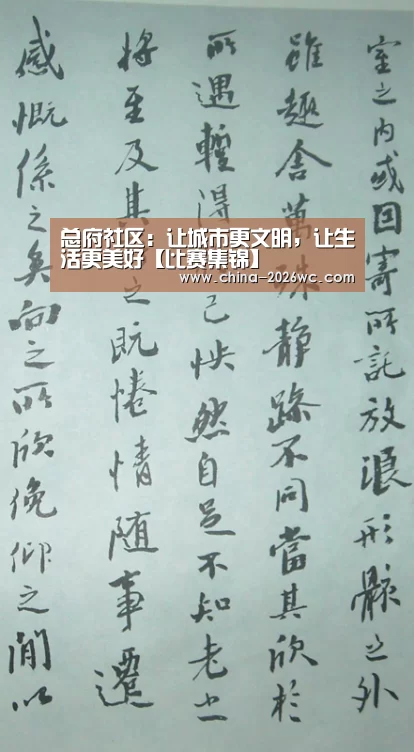 室之内或因寄所託放浪形骸之外
雖趣舍萬殊静躁不同當其欣於
所遇暫得己怏然自足不知老之
將至及其之既惓情随事遷
感慨係之矣向之所欣俛仰之閒以
总府社区：让城市更文明，让生
活更美好【比赛集锦】
www.china-2026wc.com